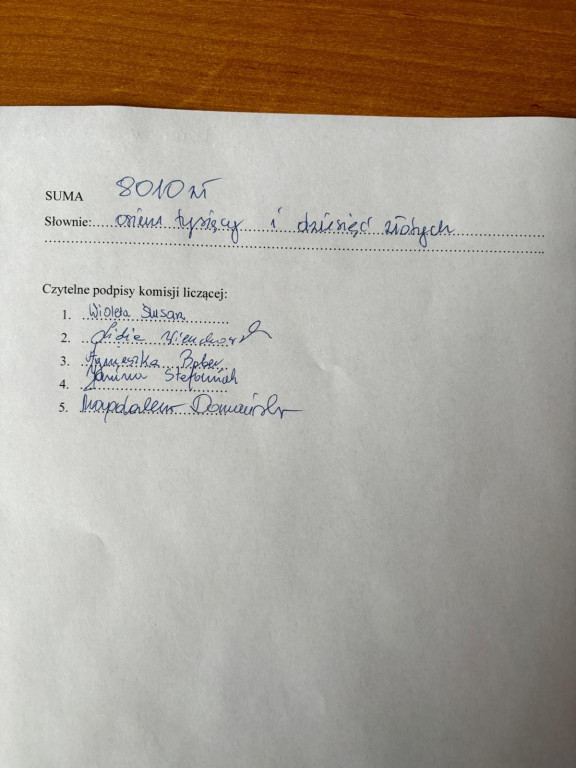 SUMA 8010 zł
Słownie: osiem tysięcy i dziesięć złotych
Czytelne podpisy komisji liczącej:
1. Wioleta Susan
2. Lidia
3. Agnieszka Bober
4. Janina Stefaniak
5. Magdalena Domańska